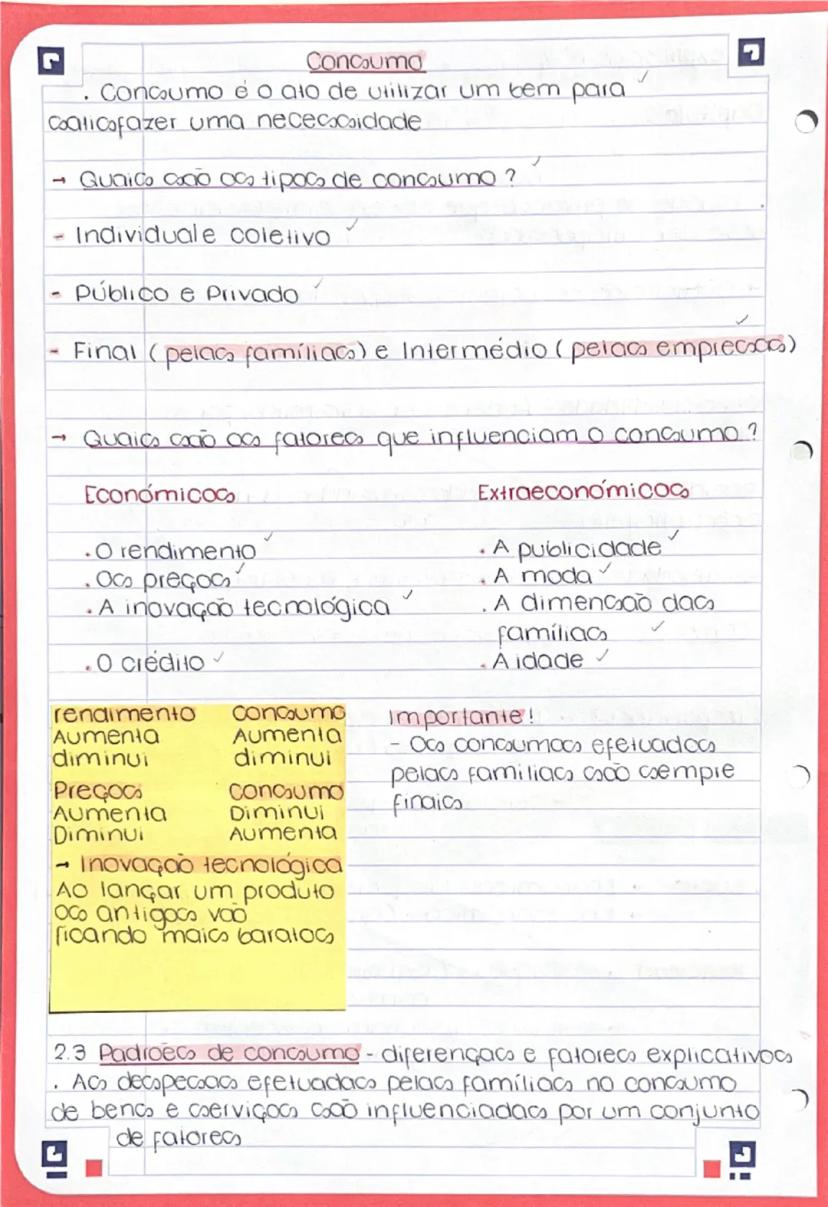 Consumo
. Consumo é o ato de utilizar um bem para
satisfazer uma necessidade
→ Quais são os tipos de consumo ?
- Individual e coletivo
- Público e Privado
- Final ( pelas famílias ) e Intermédio ( pelas empresas )
→ Quais são os fatores que influenciam o consumo ?
Económicos
. O rendimento
. Os preços
. A inovação tecnológica
. O crédito
Extraeconómicos
. A publicidade
. A moda
. A dimensão das
famílias
. A idade
rendimento consumo
Aumenta Aumenta
diminui diminui
Preços consumo
Aumenta Diminui
Diminui Aumenta
→ Inovação tecnológica
Ao lançar um produto
os antigos vão
ficando mais baratos
Importante !
- Os consumos efetuados
pelas familias são sempre
finais
2.3 Padrões de consumo - diferenças e fatores explicativos
. As despesas efetuadas pelas famílias no consumo
de bens e serviços são influenciadas por um conjunto
de fatores